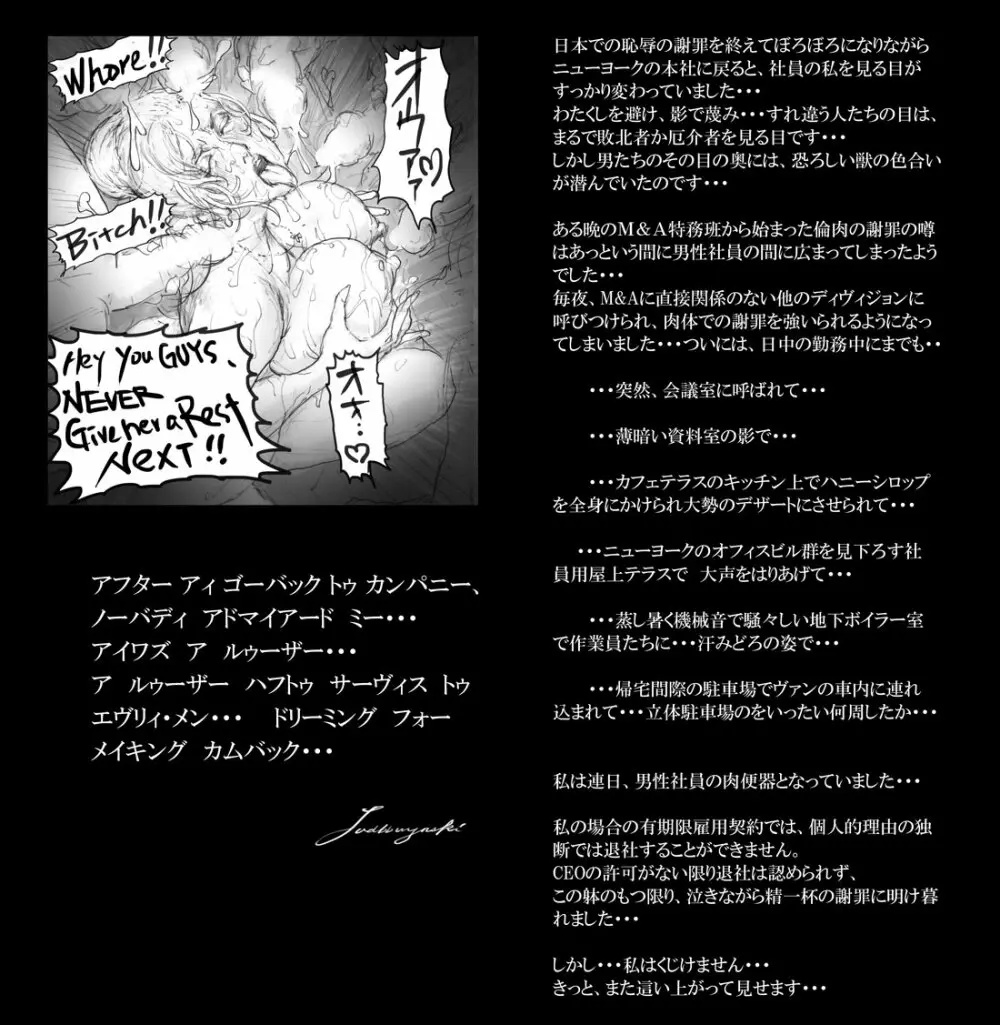 Whore!!
オウアァァ♡
Bitch!!
Hey You GUYS,
NEVER
Give her a Rest
NexT!!
オオ…♡
アフター アィ ゴーバック トゥ カンパニー、
ノーバディ アドマイアード ミー・・・
アイワズ ア ルゥーザー・・・
ア ルゥーザー ハフトゥ サーヴィス トゥ
エヴリィ・メン・・・ ドリーミング フォー
メイキング カムバック・・・
日本での恥辱の謝罪を終えてぼろぼろになりながら
ニューヨークの本社に戻ると、社員の私を見る目が
すっかり変わっていました・・・
わたくしを避け、影で蔑み・・・すれ違う人たちの目は、
まるで敗北者か厄介者を見る目です・・・
しかし男たちのその目の奥には、恐ろしい獣の色合い
が潜んでいたのです・・・
ある晩のM&A特務班から始まった倫肉の謝罪の噂
はあっという間に男性社員の間に広まってしまったよう
でした・・・
毎夜、M&Aに直接関係のない他のディヴィジョンに
呼びつけられ、肉体での謝罪を強いられるようになっ
てしまいました・・・ついには、日中の勤務中にまでも・・
・・・突然、会議室に呼ばれて・・・
・・・薄暗い資料室の影で・・・
・・・カフェテラスのキッチン上でハニーシロップ
を全身にかけられ大勢のデザートにさせられて・・・
・・・ニューヨークのオフィスビル群を見下ろす社
員用屋上テラスで 大声をはりあげて・・・
・・・蒸し暑く機械音で騒々しい地下ボイラー室
で作業員たちに・・・汗みどろの姿で・・・
・・・帰宅間際の駐車場でヴァンの車内に連れ
込まれて・・・立体駐車場のをいったい何周したか・・・
私は連日、男性社員の肉便器となっていました・・・
私の場合の有期限雇用契約では、個人的理由の独
断では退社することができません。
CEOの許可がない限り退社は認められず、
この躰のもつ限り、泣きながら精一杯の謝罪に明け暮
れました・・・
しかし・・・私はくじけません・・・
きっと、また這い上がって見せます・・・